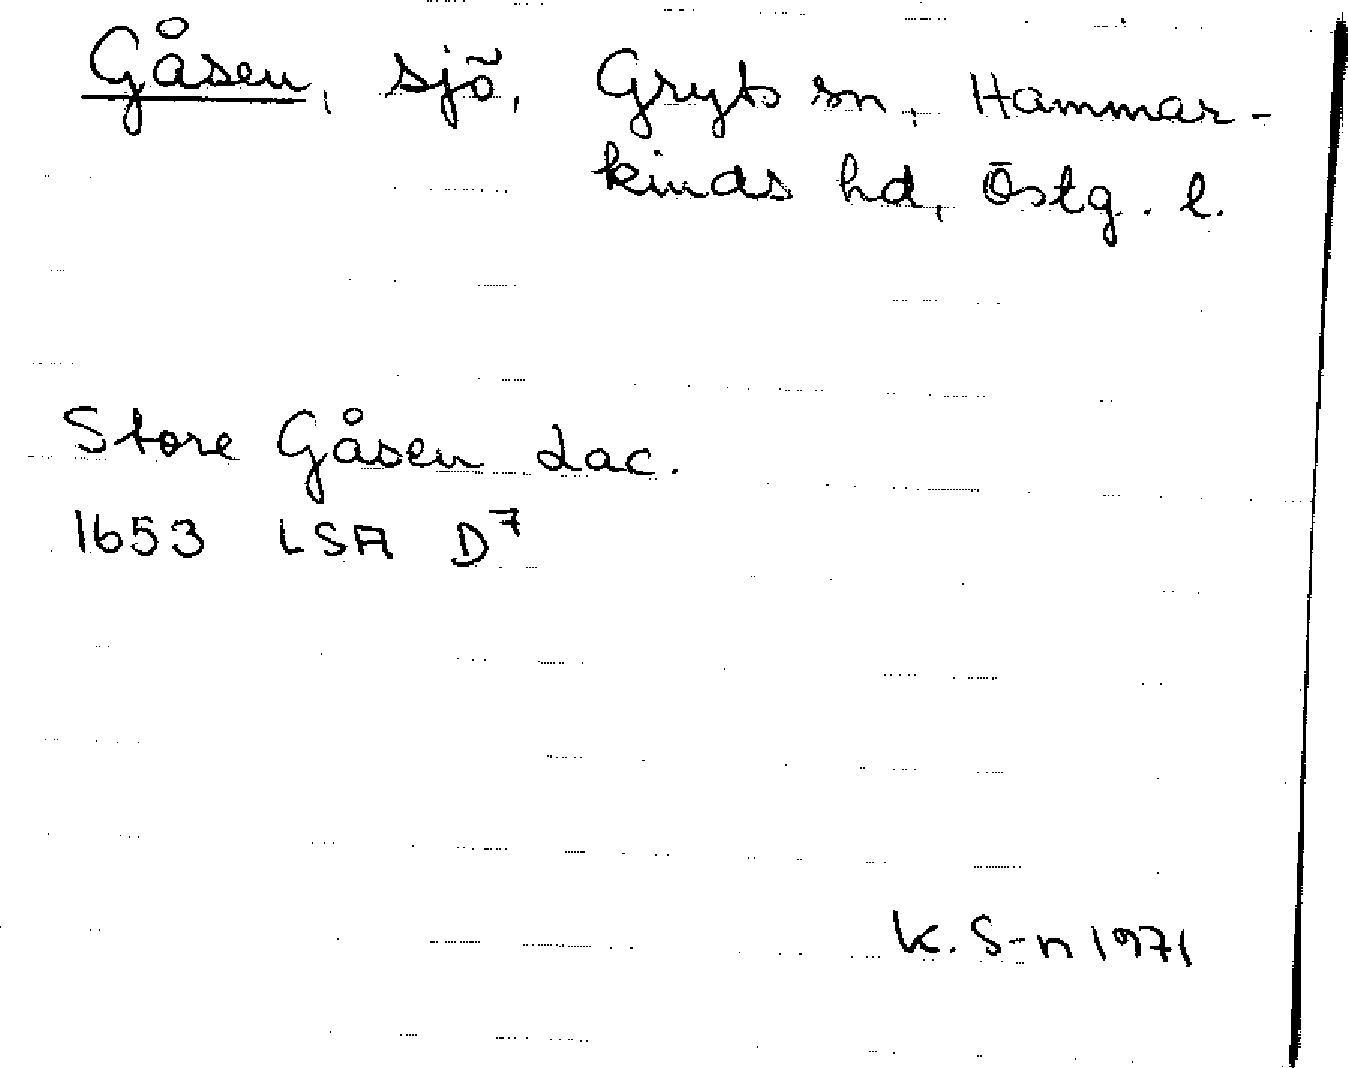 Gåsen, sjö, Gryts sn, Hammar-
kinds hd, Östg. l.
Store Gåsen Lac.
1653 LSA D7
K. S-n 1971